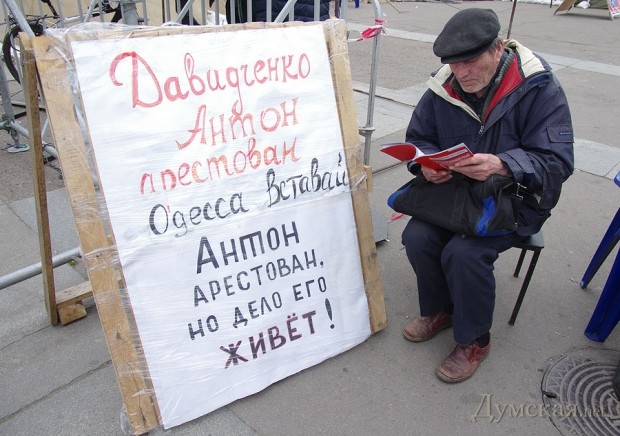 Давидченко
Антон
арестован
Одесса вставай
Антон
арестован,
но дело его
живёт!
Думская.net